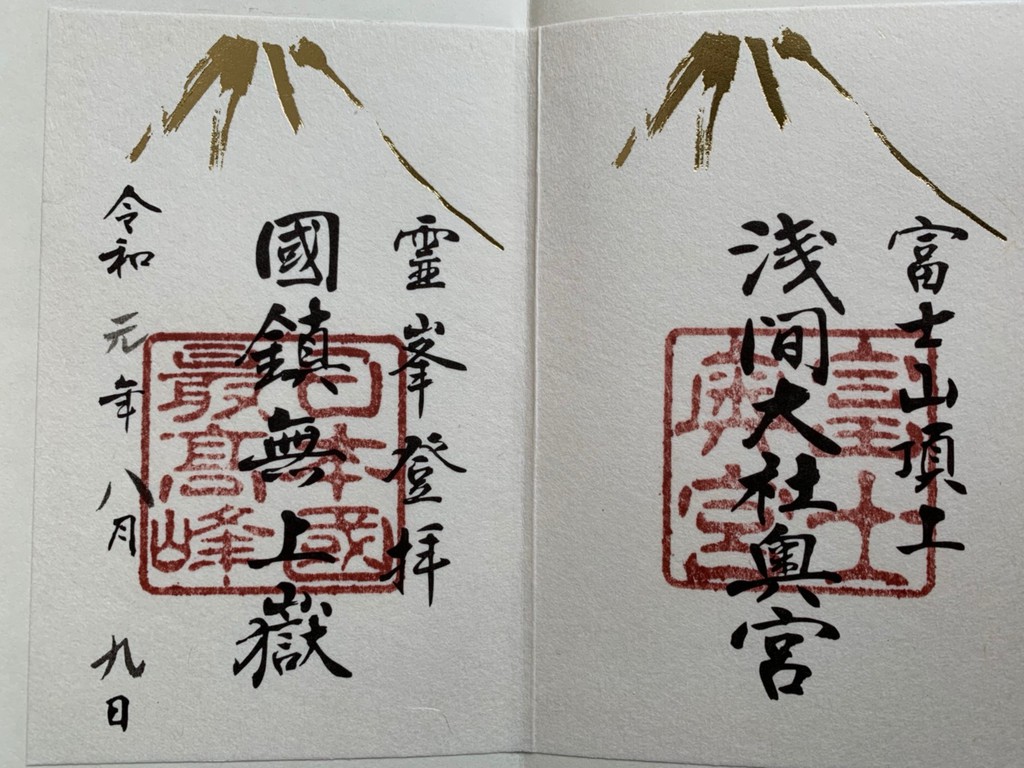 富士山頂上
浅間大社奥宮
富士
奥宮
靈峯登拝
國鎮無上嶽
日本國
最高峰
令和元年八月九日